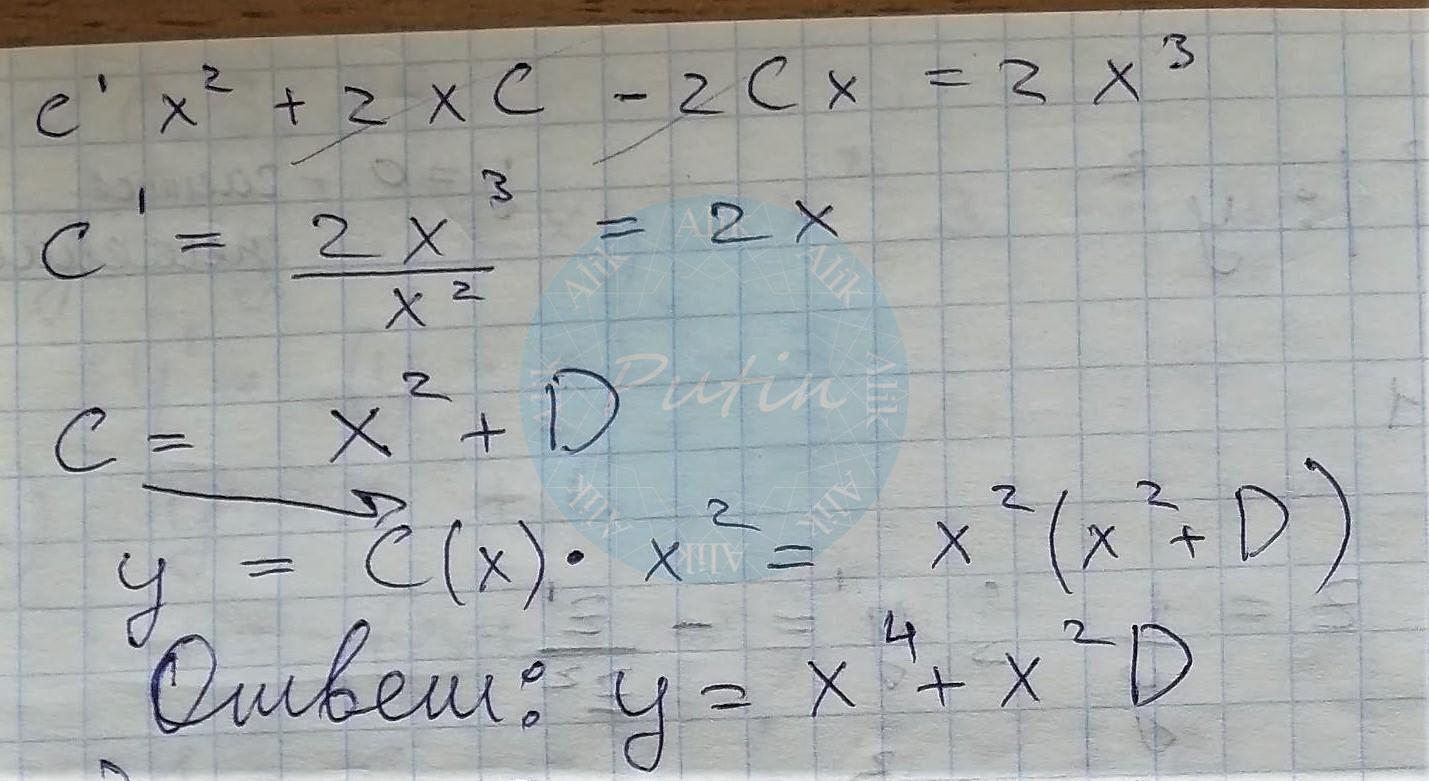 c' x² + 2 x C - 2 C x = 2 x³
C' = 2x³/x² = 2x
C = x² + D
y = C(x) · x² = x²(x² + D)
Ответ: y = x⁴ + x² D
Putin
Alik Alik Alik Alik Alik Alik Alik Alik